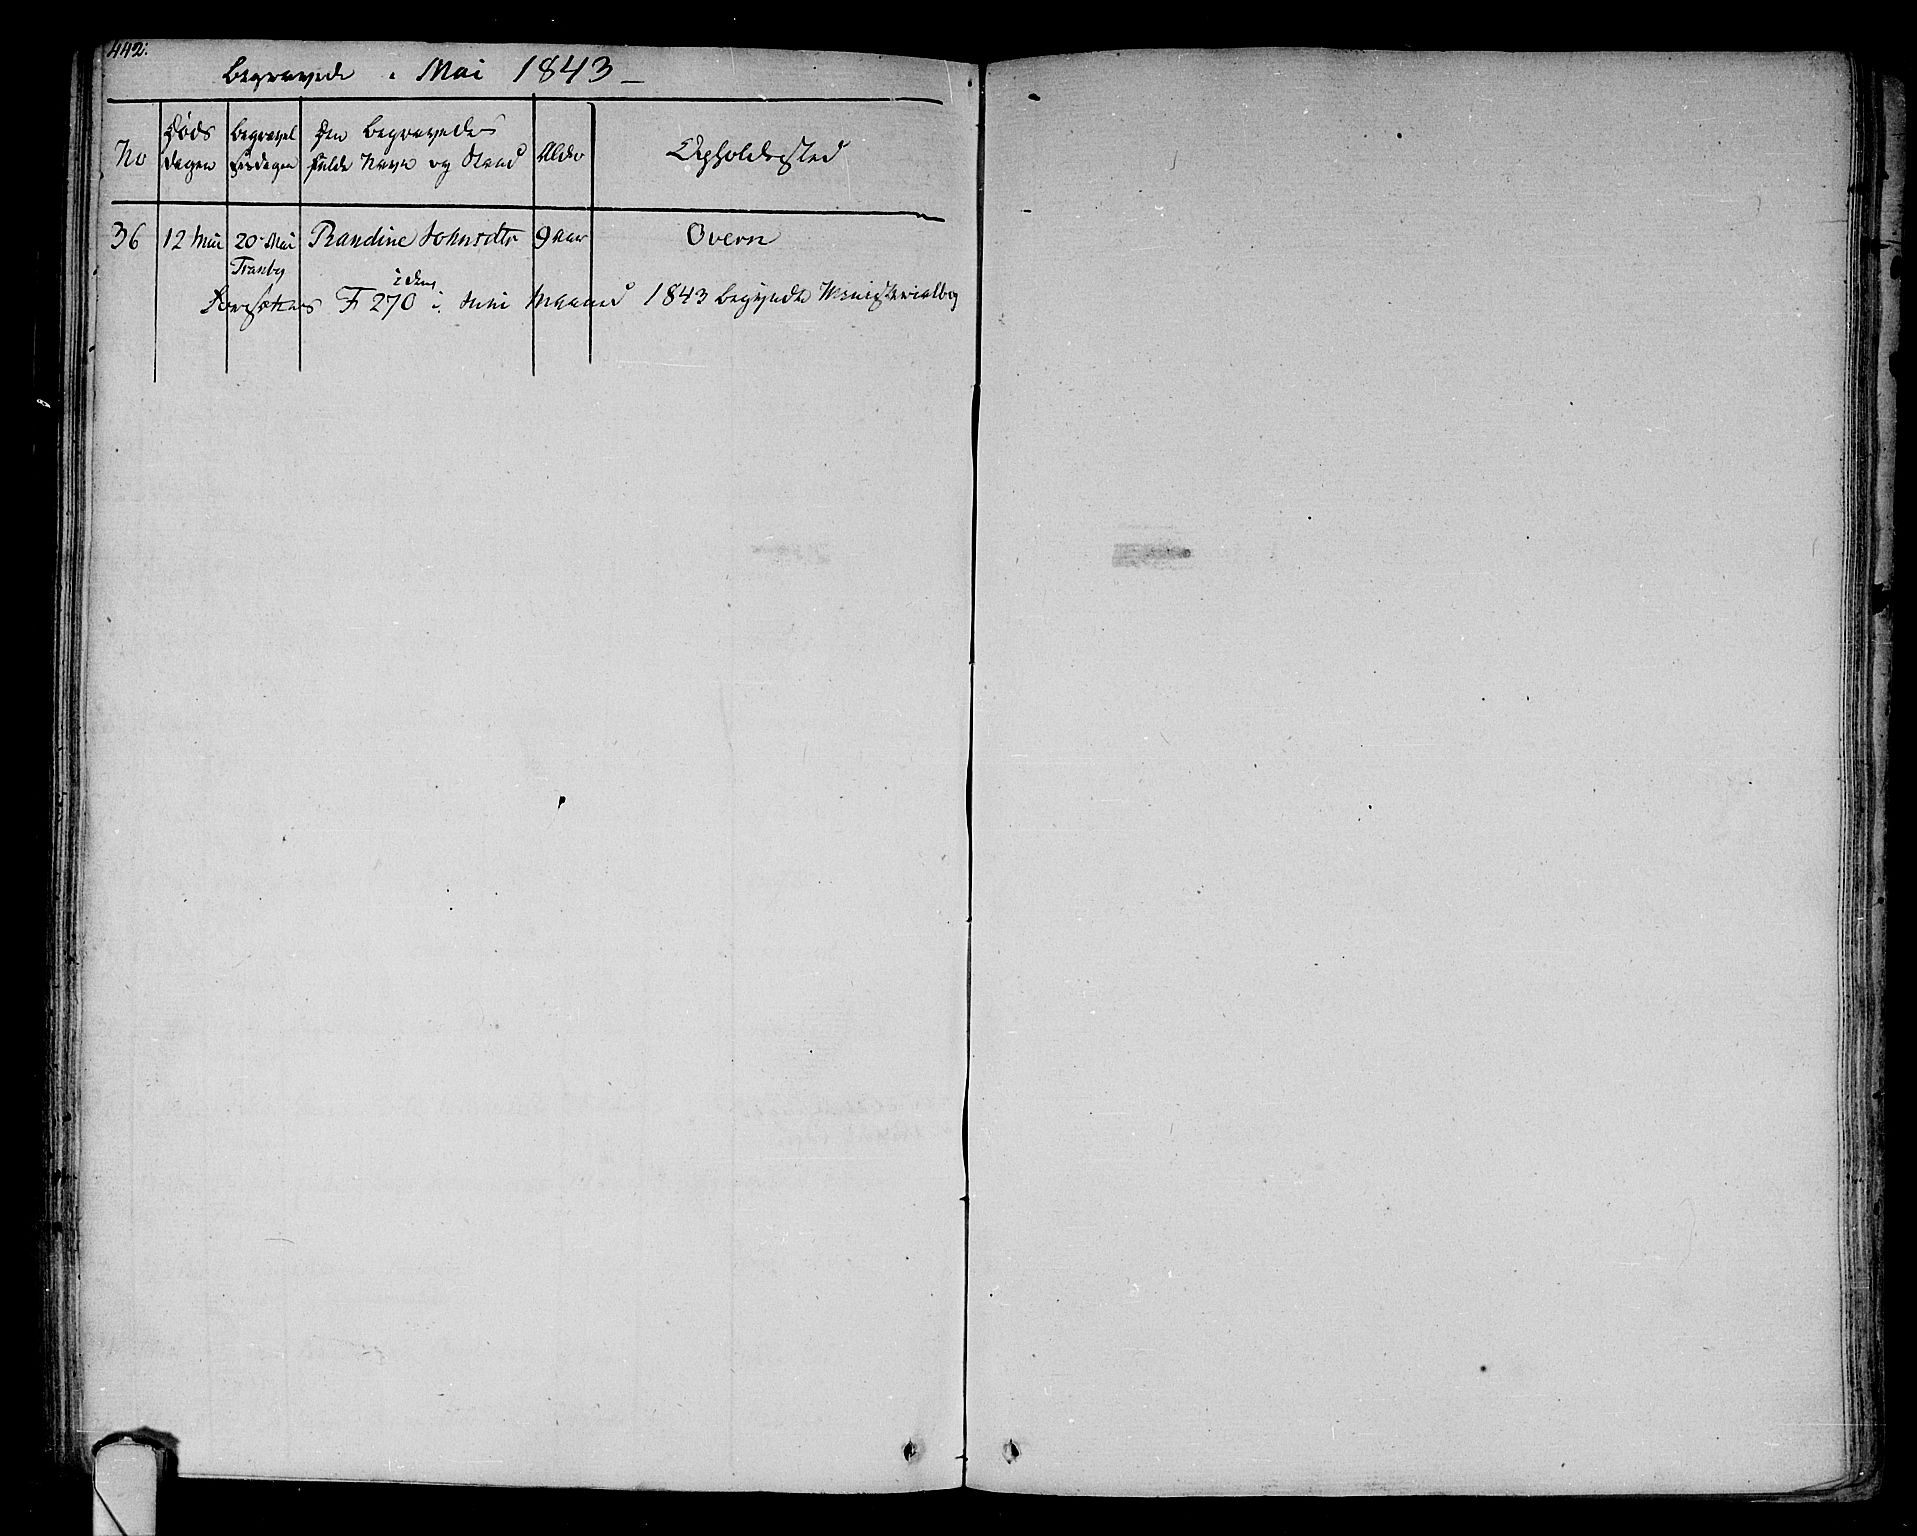 442.
Begravede i Mai 1843
No
Døds
Dagen
Begravel
sesdagen
Den Begravedes
fulde Navn og Stand
Alder
Opholdssted
36 12 Mai 20 Mai Randine Johnsdtr 9 Aar Overn
Tranby
Fortsættes F 270 i den i Juni Maaned 1843 begyndte Ministerialbog